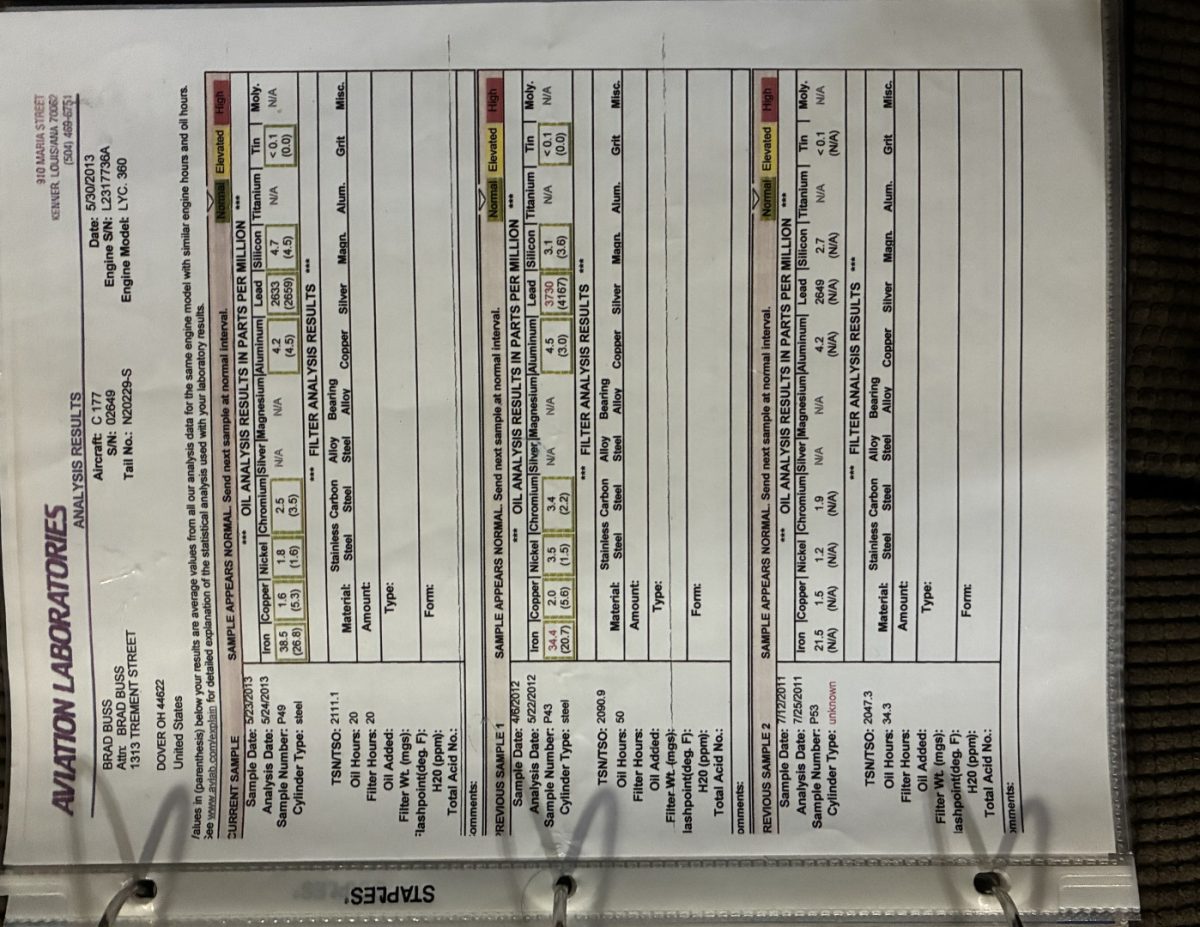 AVIATION LABORATORIES
910 MARIA STREET
KENNER, LOUISIANA 70062
(504) 469-6751
ANALYSIS RESULTS
BRAD BUSS
Attn: BRAD BUSS
1313 TREMENT STREET
DOVER OH 44622
United States
Aircraft: C 177
S/N: 02649
Tail No.: N20229-S
Date: 5/30/2013
Engine S/N: L2317736A
Engine Model: LYC. 360
Values in (parenthesis) below your results are average values from all our analysis data for the same engine model with similar engine hours and oil hours.
See www.avlab.com/explain for detailed explanation of the statistical analysis used with your laboratory results.
CURRENT SAMPLE SAMPLE APPEARS NORMAL. Send next sample at normal interval. Normal Elevated High
Sample Date: 5/23/2013
Analysis Date: 5/24/2013
Sample Number: P49
Cylinder Type: steel
TSN/TSO: 2111.1
Oil Hours: 20
Filter Hours: 20
Oil Added:
Filter Wt. (mgs):
Flashpoint(deg. F):
H20 (ppm):
Total Acid No.:
*** OIL ANALYSIS RESULTS IN PARTS PER MILLION ***
Iron Copper Nickel Chromium Silver Magnesium Aluminum Lead Silicon Titanium Tin Moly.
38.5 1.6 1.8 2.5 N/A N/A 4.2 2633 4.7 N/A < 0.1 N/A
(26.8) (5.3) (1.6) (3.5) (4.5) (2659) (4.5) (0.0)
*** FILTER ANALYSIS RESULTS ***
Stainless Carbon Alloy Bearing
Material: Steel Steel Steel Alloy Copper Silver Magn. Alum. Grit Misc.
Amount:
Type:
Form:
omments:
PREVIOUS SAMPLE 1 SAMPLE APPEARS NORMAL. Send next sample at normal interval. Normal Elevated High
Sample Date: 4/6/2012
Analysis Date: 5/22/2012
Sample Number: P43
Cylinder Type: steel
TSN/TSO: 2090.9
Oil Hours: 50
Filter Hours:
Oil Added:
Filter Wt. (mgs):
lashpoint(deg. F):
H20 (ppm):
Total Acid No.:
*** OIL ANALYSIS RESULTS IN PARTS PER MILLION ***
Iron Copper Nickel Chromium Silver Magnesium Aluminum Lead Silicon Titanium Tin Moly.
34.4 2.0 3.5 3.4 N/A N/A 4.5 3730 3.1 N/A < 0.1 N/A
(20.7) (5.6) (1.5) (2.2) (3.0) (4167) (3.6) (0.0)
*** FILTER ANALYSIS RESULTS ***
Stainless Carbon Alloy Bearing
Material: Steel Steel Steel Alloy Copper Silver Magn. Alum. Grit Misc.
Amount:
Type:
Form:
omments:
REVIOUS SAMPLE 2 SAMPLE APPEARS NORMAL. Send next sample at normal interval. Normal Elevated High
Sample Date: 7/12/2011
Analysis Date: 7/25/2011
Sample Number: P53
Cylinder Type: unknown
TSN/TSO: 2047.3
Oil Hours: 34.3
Filter Hours:
Oil Added:
Filter Wt. (mgs):
lashpoint(deg. F):
H20 (ppm):
Total Acid No.:
*** OIL ANALYSIS RESULTS IN PARTS PER MILLION ***
Iron Copper Nickel Chromium Silver Magnesium Aluminum Lead Silicon Titanium Tin Moly.
21.5 1.5 1.2 1.9 N/A N/A 4.2 2649 2.7 N/A < 0.1 N/A
(N/A) (N/A) (N/A) (N/A) (N/A) (N/A) (N/A) (N/A)
*** FILTER ANALYSIS RESULTS ***
Stainless Carbon Alloy Bearing
Material: Steel Steel Steel Alloy Copper Silver Magn. Alum. Grit Misc.
Amount:
Type:
Form:
omments:
STAPLES